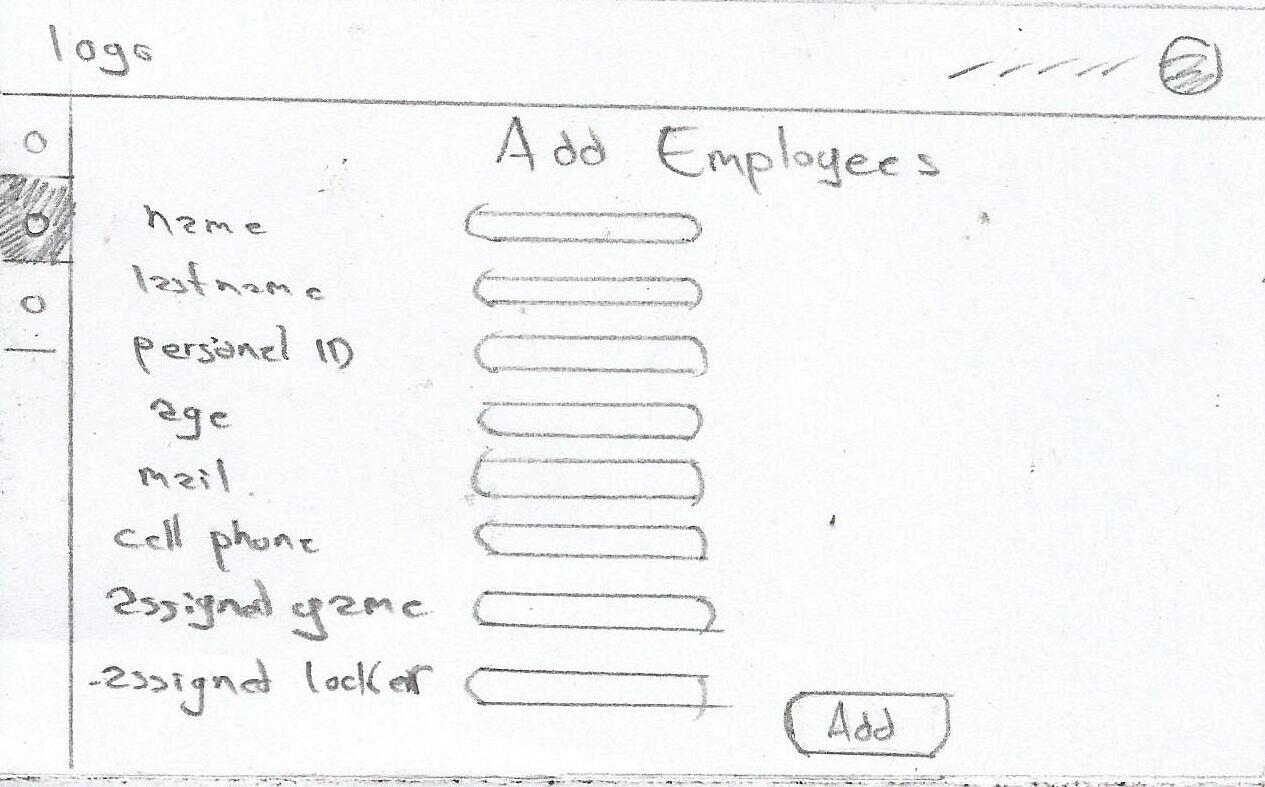 logo
Add Employees
name
lastname
personel ID
age
mail
cell phone
assigned game
assigned locker
Add